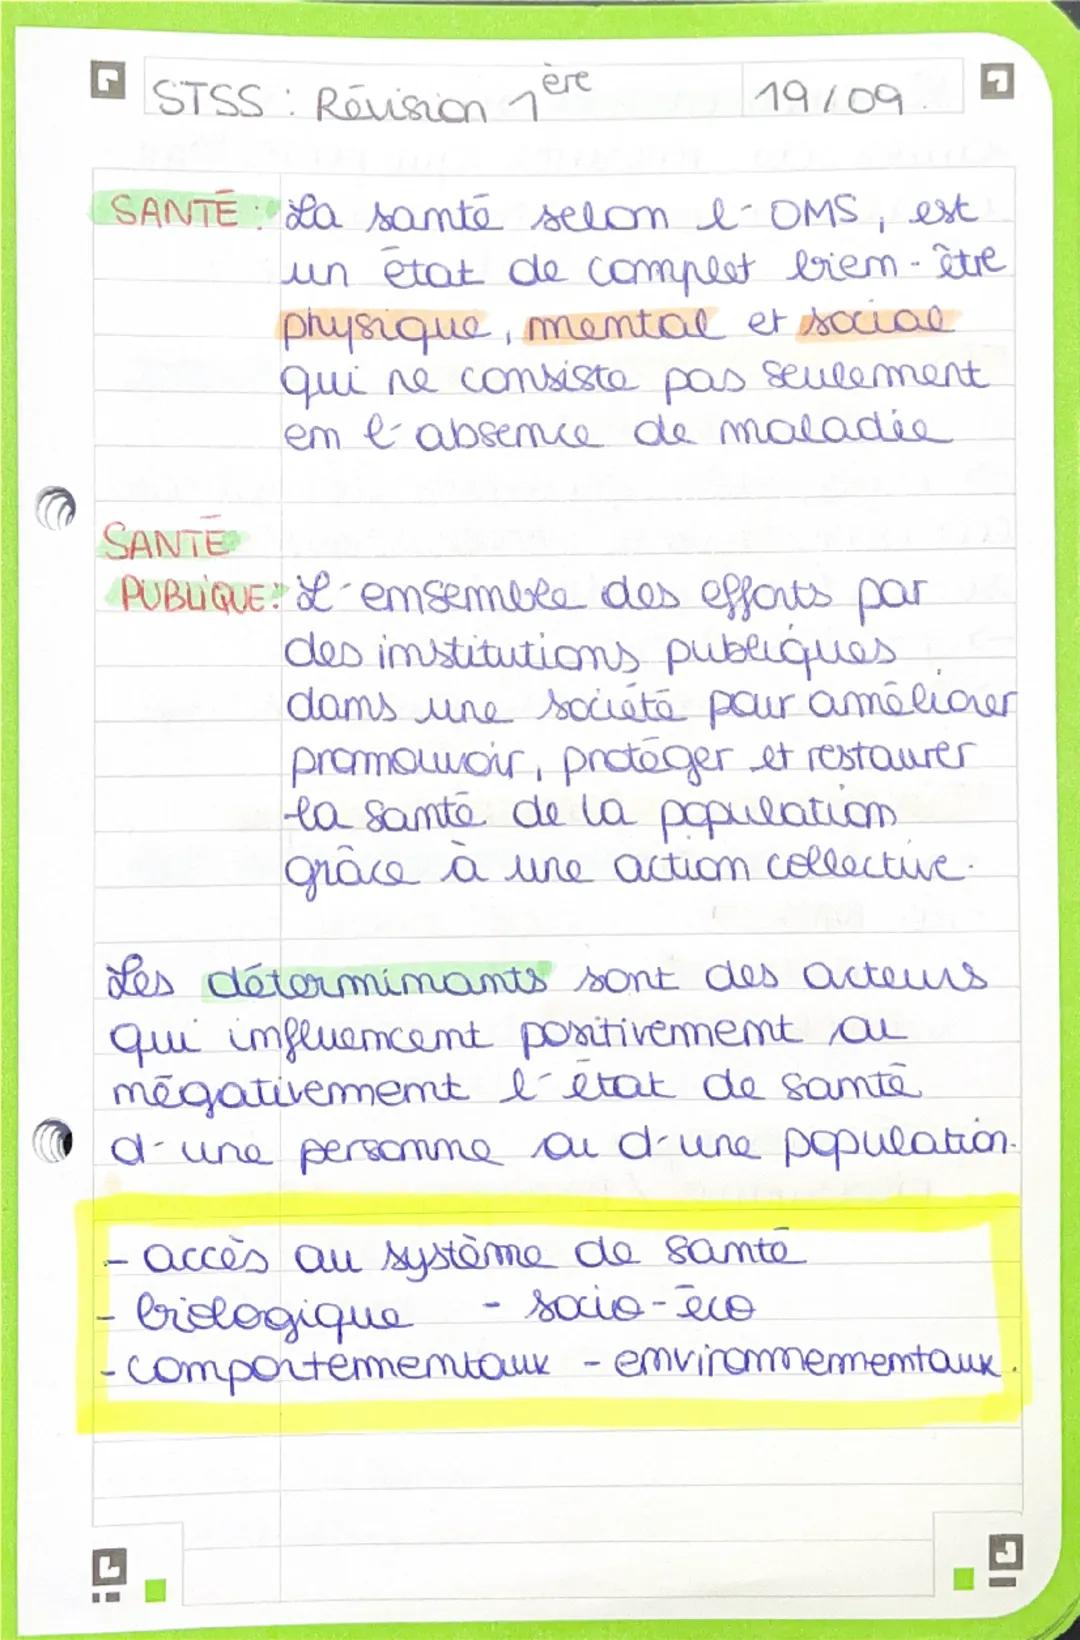 STSS : Révision 1ère 19/09.
SANTÉ : La santé selon l'OMS, est
un état de complet bien-être
physique, mental et social
qui ne consiste pas seulement
en l'absence de maladie
SANTÉ
PUBLIQUE: L'ensemble des efforts par
des institutions publiques
dans une société pour améliorer
promouvoir, protéger et restaurer
la santé de la population
grâce à une action collective.
Les déterminants sont des acteurs
qui influencent positivement ou
négativement l'état de santé
d'une personne ou d'une population.
- accès au système de santé
- biologique - socio-éco
- comportementaux - environnementaux.